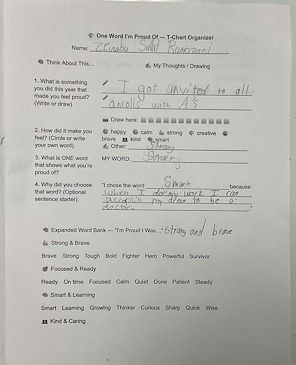 One Word I'm Proud Of — T-Chart Organizer
Name: Zeinabu Said Ramazani
Think About This...
My Thoughts / Drawing
1. What is something
you did this year that
made you feel proud?
(Write or draw)
I got invited to all
with A's
Draw here:
2. How did it make you
feel? (Circle or write
your own word)
happy calm strong creative
brave kind smart
Other: Strong
3. What is ONE word
that shows what you're
proud of?
MY WORD: Smart
4. Why did you choose
that word? (Optional
sentence starter)
"I chose the word Smart because
when I doing work I can
my dime to be a
doctor.
Expanded Word Bank — "I'm Proud I Was..." Strong and brave
Strong & Brave
Brave Strong Tough Bold Fighter Hero Powerful Survivor
Focused & Ready
Ready On time Focused Calm Quiet Done Patient Steady
Smart & Learning
Smart Learning Growing Thinker Curious Sharp Quick Wise
Kind & Caring